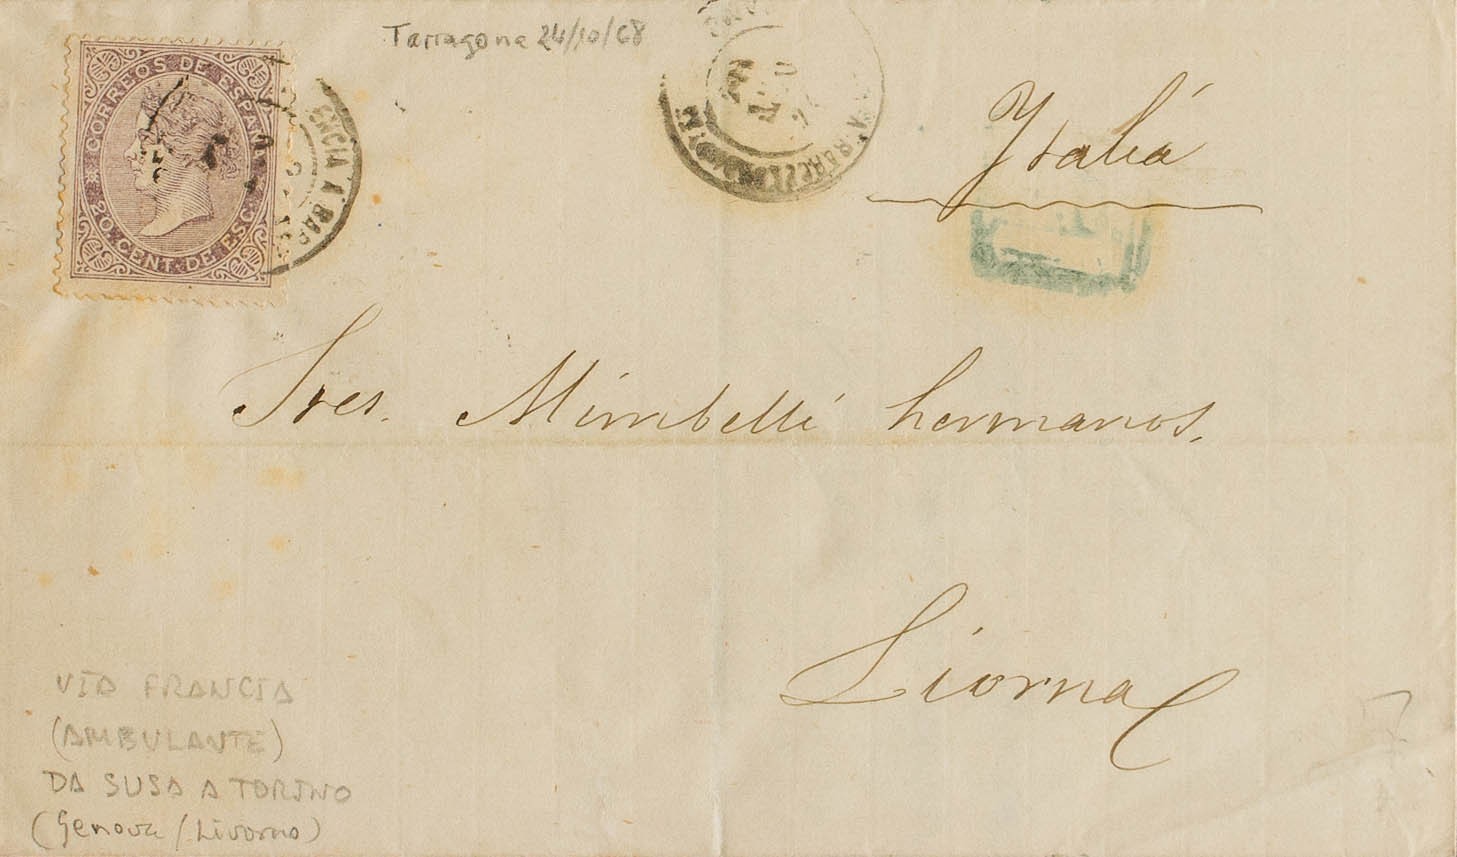 Tarragona 24/10/68
CORREOS DE ESPAÑA
20. CENT. DE ESC.
ENCIA Á BAR
Ytaliá
Sres. Mimbelli hermanos.
Liorna
VIA FRANCIA
(AMBULANTE)
DA SUSA A TORINO
(Genova / Livorno)